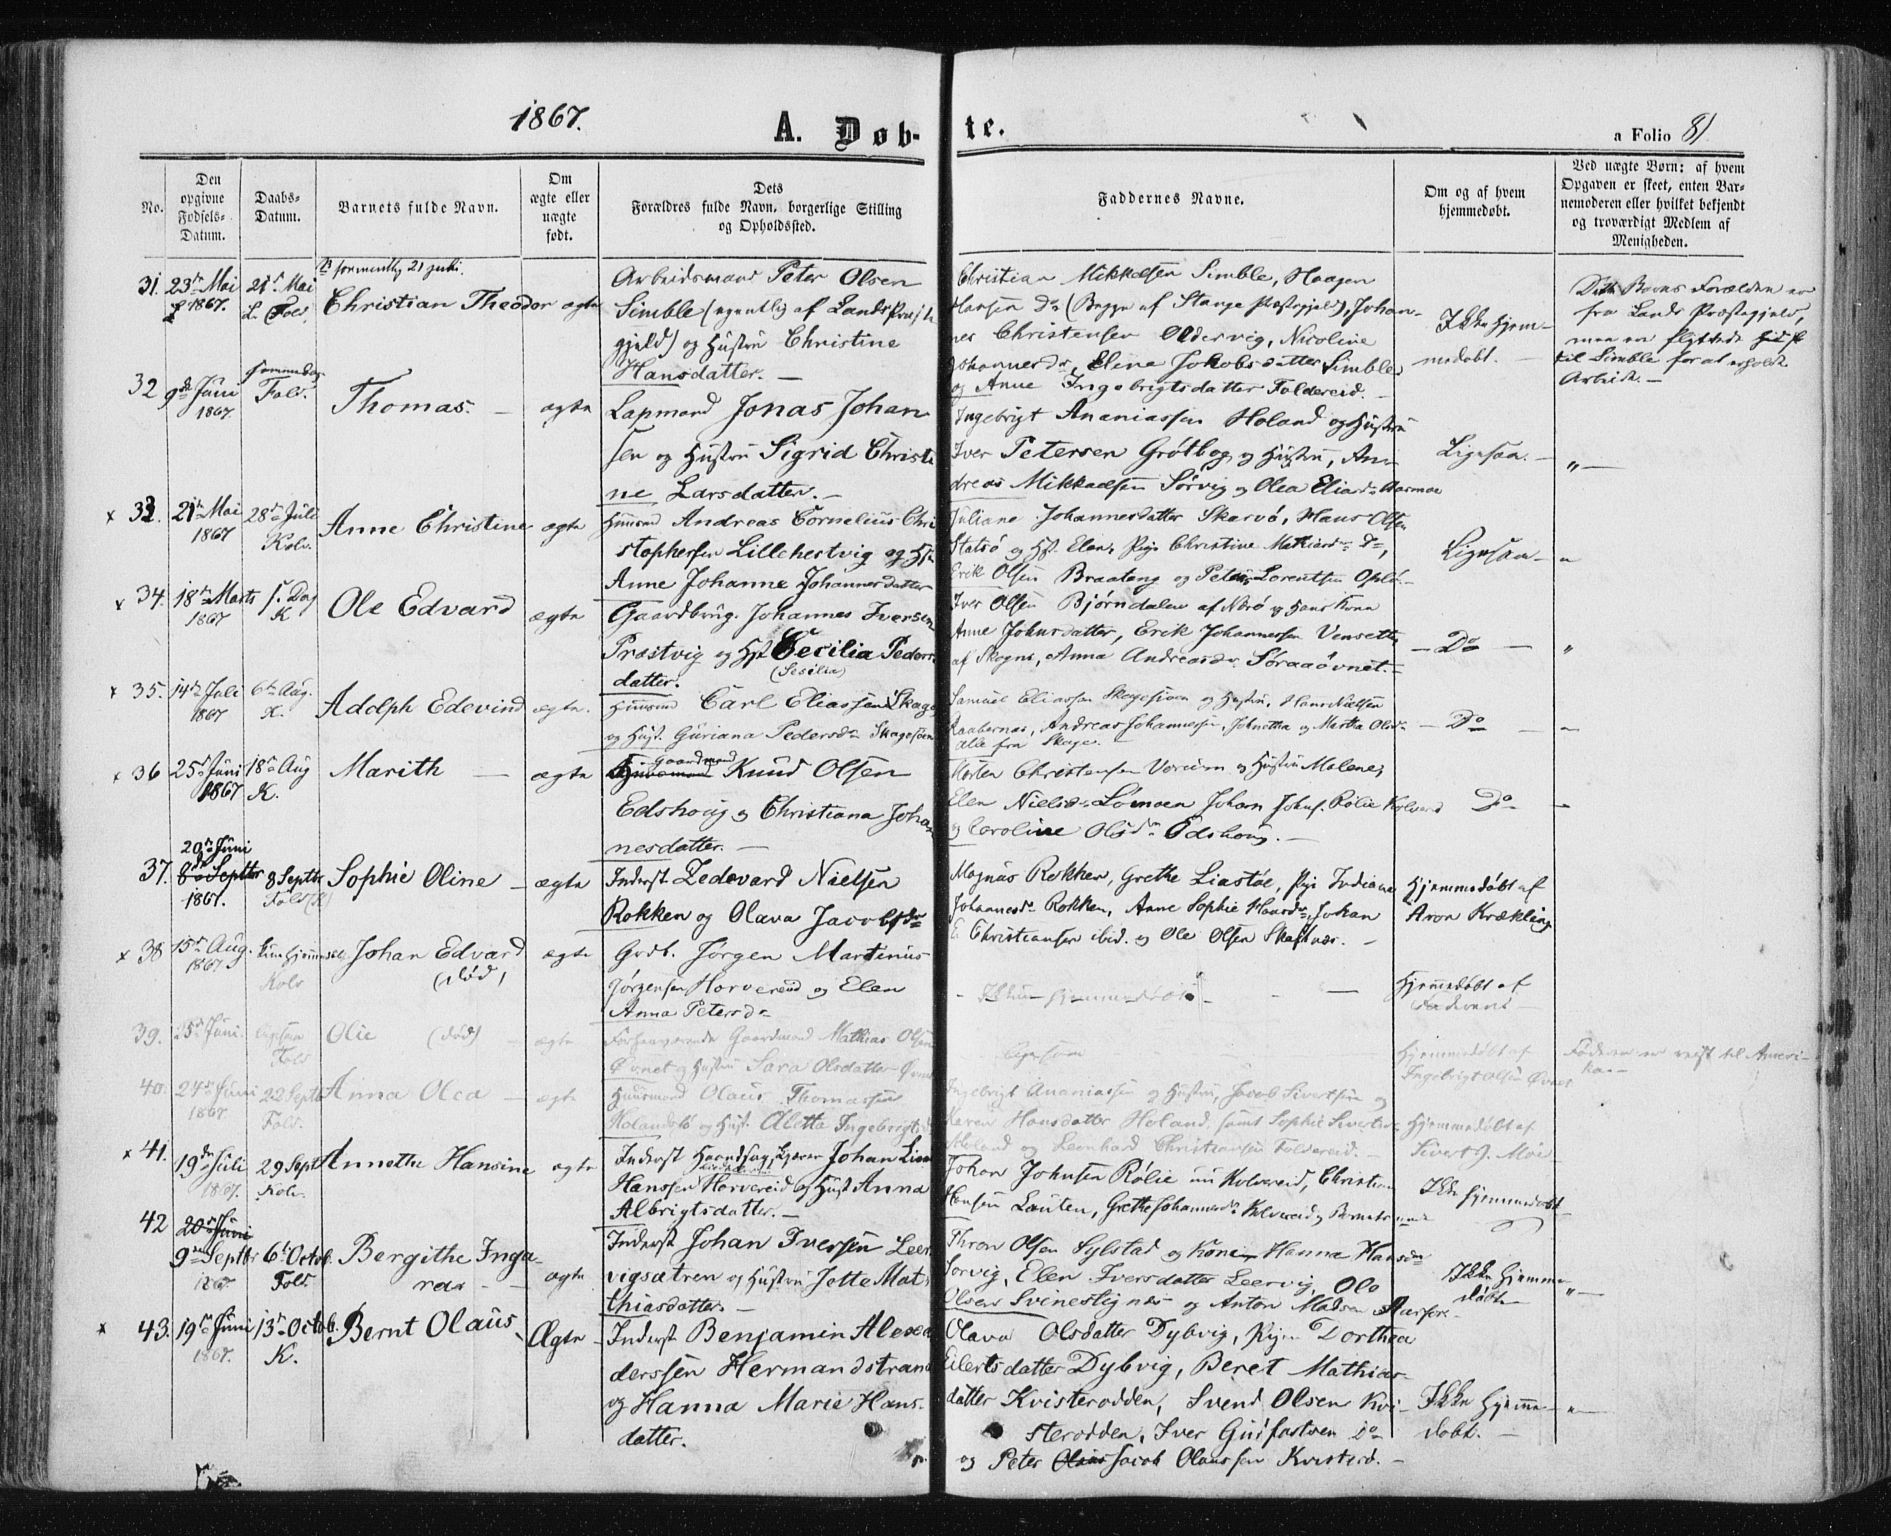 1867.
A. Døb-
te.
a Folio 81
No.
Den opgivne Fødsels-Datum.
Daabs-Datum.
Barnets fulde Navn.
Om ægte eller uægte født.
Dets Forældres fulde Navn, borgerlige Stilling og Opholdssted.
Faddernes Navne.
Om og af hvem hjemmedøbt.
Ved uægte Børn: af hvem Opgaven er skeet, enten Barnemoderen eller hvilket bekjendt og troværdigt Medlem af Menigheden.
31. 23de Mai 1867. Christian Theodor ægte
Arbeidsmand Peter Olsen
Simble (egentlig af Lands Præste
gjeld) og Hustru Christine
Hansdatter. —
Christian Mikkelsen Simble, Haagen
Hansen Do (Bygge af Stange Præstegjeld), Johan-
nes Christensen Oldervig, Nicoline
Johannesdr, Eline Jakobsdatter Simble
og Anne Ingebrigtsdatter Foldereid. —
Ikke hjem-
medøbt. —
Dette Barns Forældre er
fra Lands Præstegjeld,
men er flyttede hid
til Simble for at erholde
Arbeide. —
32 9de Juni 1867. Fold. Thomas. — ægte
Lapmand Jonas Johan
sen og Hustru Sigrid Christi
ne Larsdatter. —
Ingebrigt Ananiassen Holand og Hustru
Iver Petersen Grøtbog og Hustru, An-
dreas Mikkaelsen Sørvig og Olea Eliasdr Aarmoe
Ligesaa. —
" —
x 33. 21de Mai 1867 28de Juli Kolv. Anne Christine ægte
Huusmd Andreas Cornelius Chri
stophersen Lillehestvig og Hst
Anne Johanne Johannesdatter
Juliane Johannesdatter Skarvø, Hans Olsen
Statsø og Hst. Elen, Pige Christine Mathiasdr Do,
Erik Olsen Braateng og Peter Lorentsen Oplø. —
Ligesaa —
"
x 34. 18de Marts 1867 K Ole Edvard ægte
Gaardbrug. Johannes Iversen
Præstvig og Hst Cecilia Peders
(Sesilia)
datter.
Iver Olsen Bjørndalen af Nærø og Hans Kona
Anne Johnsdatter, Erik Johannessen Vensett
af Skogns, Anna Andreasdr. Søraaøvnet. —
— Do —
"
x 35. 14de Juli 1867 6te Aug. K. Adolph Edevind ægte.
Huusmd Carl Eliassen Skage
og Hust. Guriana Pedersdr Skagesøen
Samuel Eliassen Skagesøen og Hustru, Hans Nielsen
Raabernæs, Andreas Johannessen, Johnetta og Martha Olsdr
alle fra Skage. —
— Do —
—
x 36 25de Juni 1867 18de Aug K. Marith — ægte
Gaardmand
Huusmand Knud Olsen
Edshoug og Christiana Joha
nesdatter. —
Morten Christensen Værum og Hustru Malene,
Elen Nielsdr Lømoen Johan Johns. Rølie Kolvereid
og Caroline Olsdr Edshoug. —
Do —
—
37. 20de Juni
8de Septbr 1867. 8 Septbr Fold (K) Sophie Oline — ægte
Inderst Zedevard Nielsen
Rokken og Olava Jacobsdr
Magnus Rokken, Grethe Liastøe, Pige Indiane
Johannesdr Rokken, Anne Sophie Hansdr, Johan
E. Christiansen ibid. og Ole Olsen Skafnæs. —
Hjemmedøbt af
Aron Krækling
x 38 15de Aug. 1867 Kun hjemmed Kolv Johan Edvard
(død) ægte
Grdb. Jørgen Martinus
Jørgensen Horvereid og Elen
Anna Petersdr
— Ikkun hjemmedøbt —
Hjemmedøbt af
Faderen —
39. 15de Juni. ligesaa Fold Olie (død) — ægte
Forhenværende Gaardmand Mathias Olsen
Øvnet og Hustru Sara Olsdatter Øvnet
ligesom
Hjemmedøbt af
Ingebrigt Olsen Øvnet
Faderen er reist til Ameri-
ka. —
40. 24de Juni 1867. 22 Septb Fold. Anna Olea — ægte
Huusmand Olaus Thomassen
og Hust. Aletta Ingebrigtsd
Ingebrigt Ananiassen og Hustru, Jacob Sivertsen og
Maren Hansdatter Holand, samt Sophie Sivertsen
Moland og Leonhard Christiansen Foldereid. —
Hjemmedøbt af
Sivert J. Moe
x 41. 19de Juli 1867. 29 Sept Kolv. Annethe Hansine ægte
Inderst Haandsagskjærer Johan
Hanssen Horvereid og Hust Anna
Albrigtsdatter. —
Johan Johnsen Rølie nu Kolvereid, Christian
Hansen Lauten, Grethe Johannesdr Kolvereid og Barnets
Ikke hjemmedøbt
42 20de Juni
9de Septbr 1867. 6te Octob. Fold. Bergithe Inga-
raa — ægte
Inderst Johan Iversen Leer
vigsætren og Hustru Jette Mat
thiasdatter. —
Thron Olsen Sylstad og Konen Hanna Hansdr
Sørvig, Elen Iversdatter Leervig, Ole
Olsen Svinestignæs og Anton Madsen Aarfore.
Ikke hjemme
døbt
" —
x 43. 19de Juni 1867. 13de Octob. K. Bernt Olaus Ægte
Inderst Benjamin Alexa
derssen Hermandstrand
og Hanna Marie Hans-
datter.
Olava Olsdatter Dybvig, Pigen Dorthea
Eilertsdatter Dybvig, Beret Mathias-
datter Kvisterodden, Svend Olsen Kvi-
sterodden, Iver do
og Peter Olaus Jacob Olaussen Kvisterd. —
Ikke hjemme-
døbt. —
" —